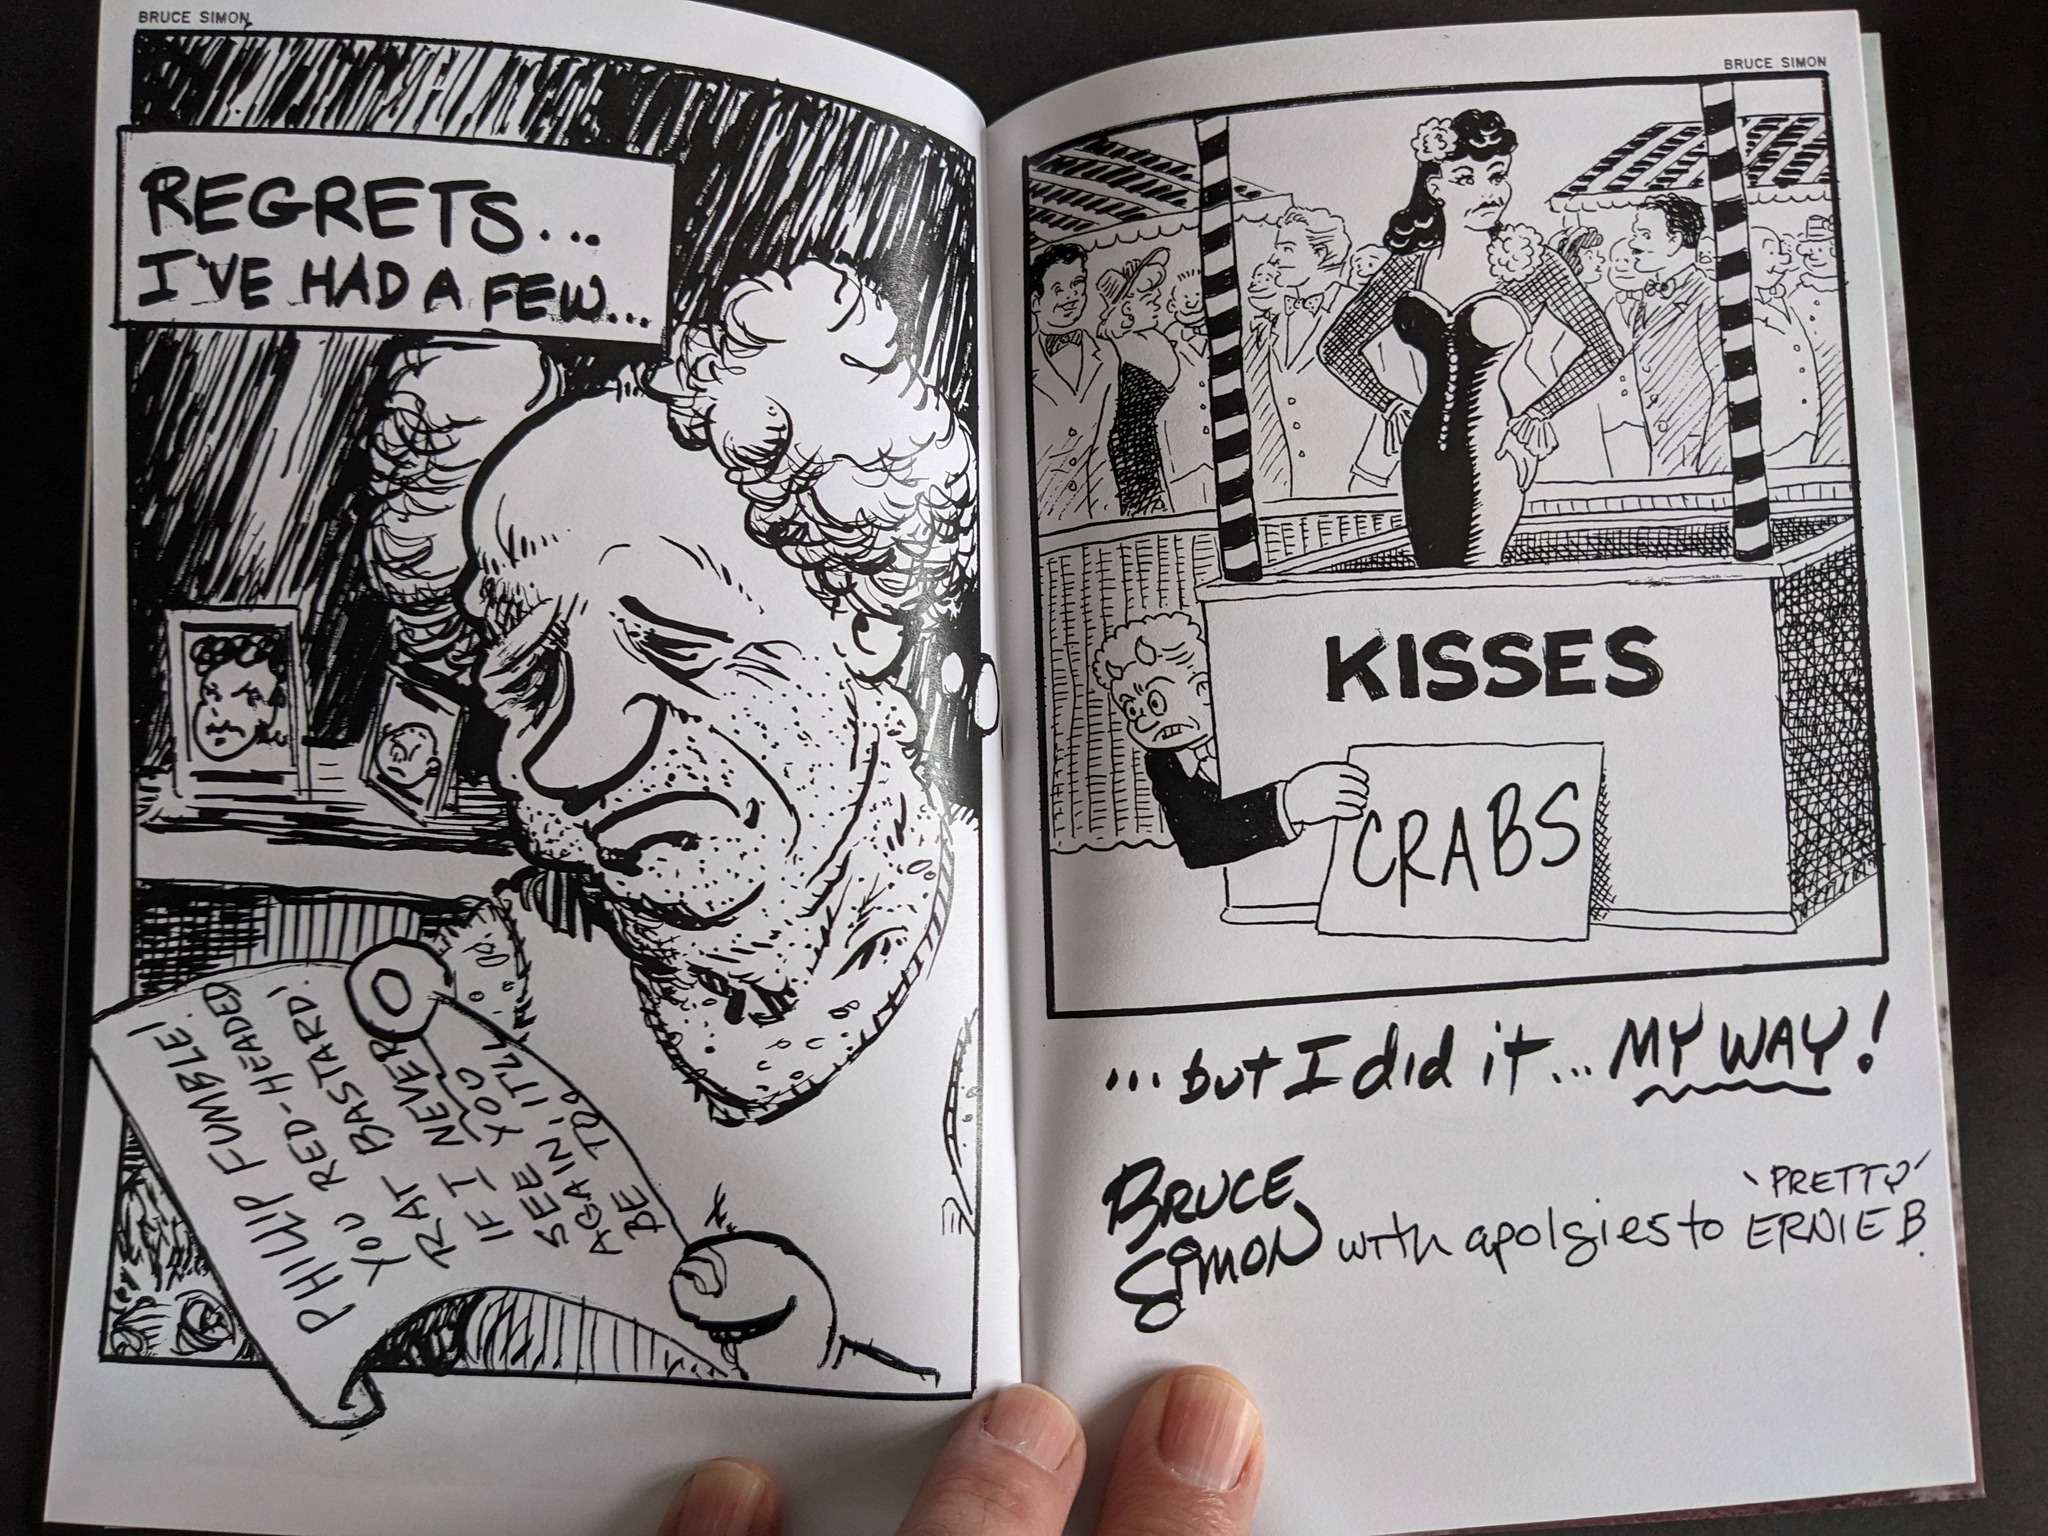 BRUCE SIMON
REGRETS...
I'VE HAD A FEW...
PHILIP FUMBLE!
YOU RED-HEADED
RAT BASTARD!
IF I NEVER
SEE YOU
AGAIN! IT'LL
BE TOO
BRUCE SIMON
KISSES
CRABS
...but I did it... MY WAY!
BRUCE
SIMON with apolgies to 'PRETTY'
ERNIE B.